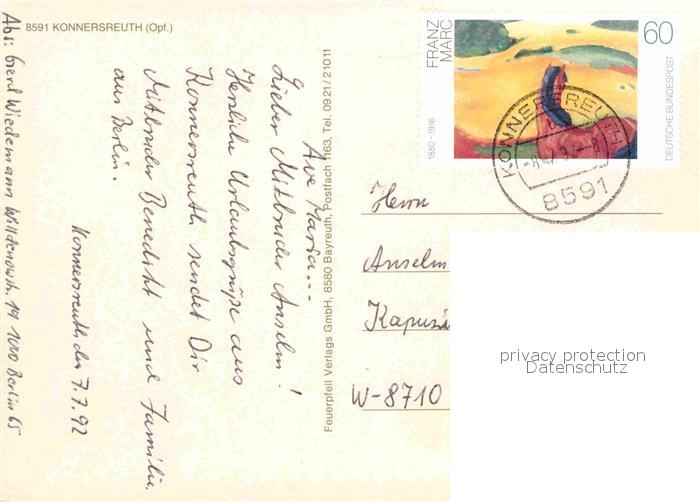 8591 KONNERSREUTH (Opf.)
Abs: Gerd Wiedemann Willdenowstr. 19 1000 Berlin 65
Ave Maria...
Lieber Mitbruder Anselm!
Herzliche Urlaubsgrüße aus
Konnersreuth sendet Dir
Mitbruder Benedikt und Familie
aus Berlin.
Konnersreuth, den 7.7.92
Feuerpfeil Verlags GmbH, 8580 Bayreuth, Postfach 1163, Tel. 0921/21011
FRANZ
MARC
1880-1916
60
DEUTSCHE BUNDESPOST
KONNERSREUTH
8591
Herrn
Anselm
Kapuzi
W-8710
privacy protection
Datenschutz